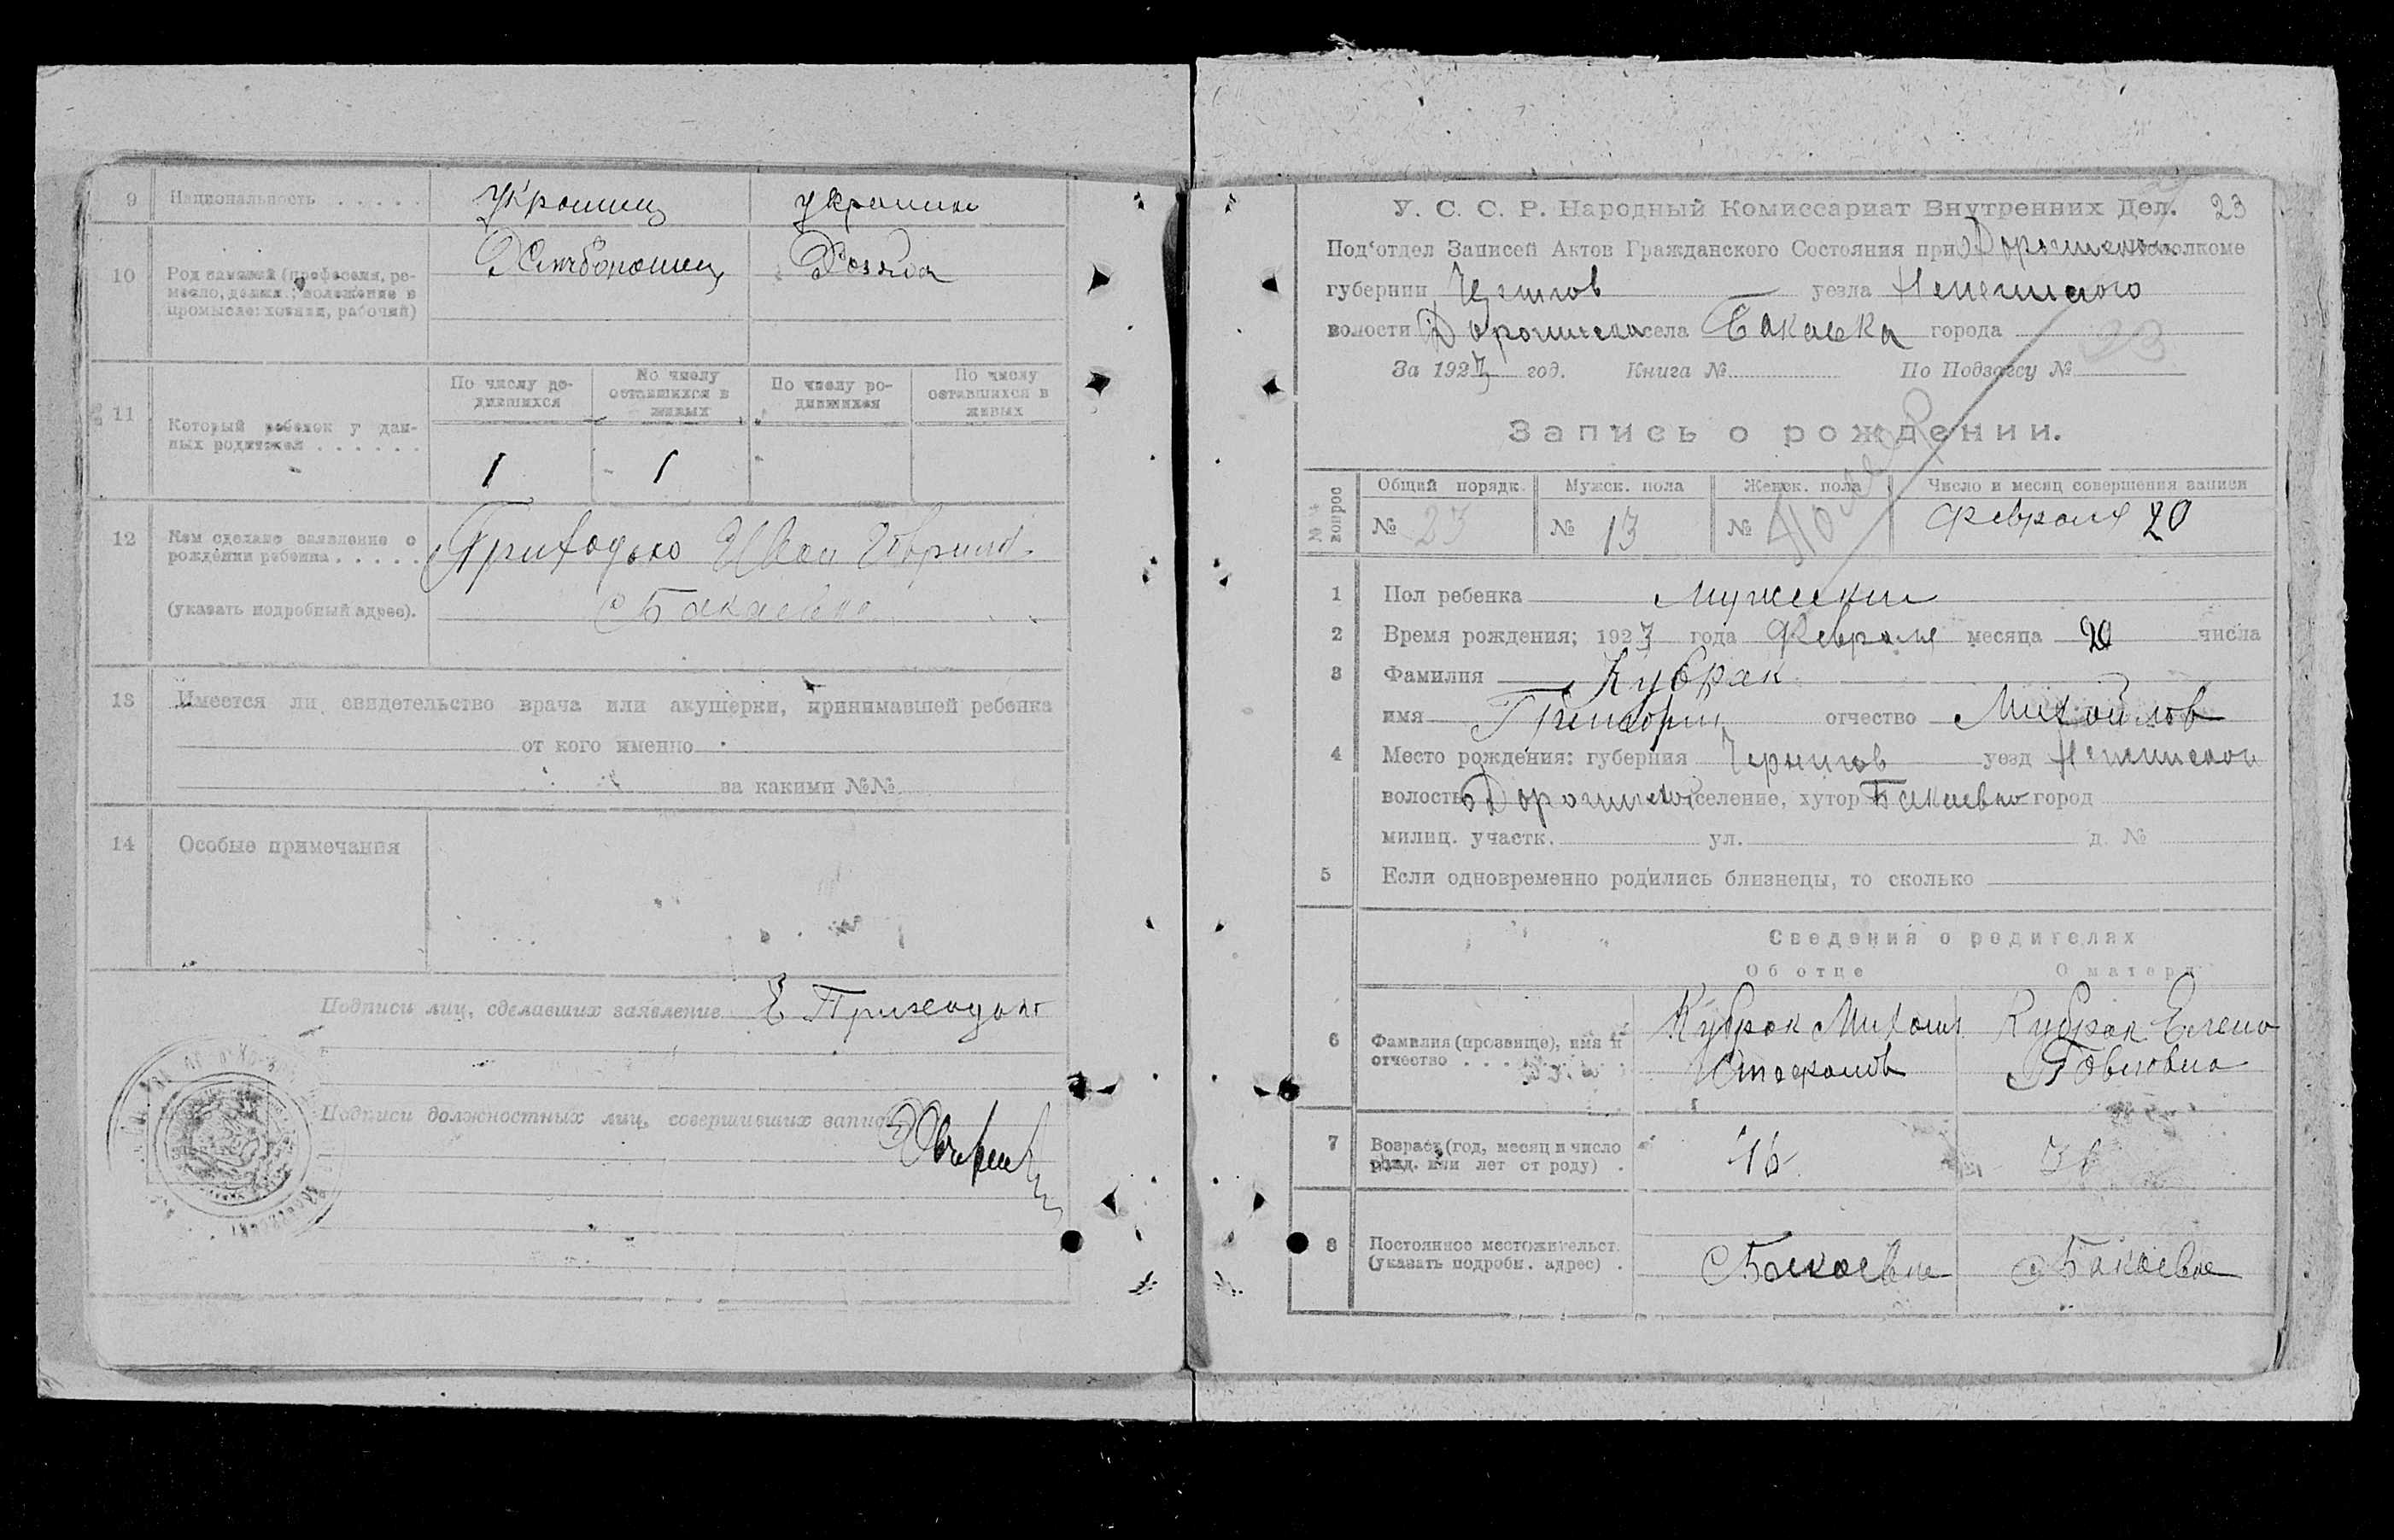 9 Национальность . . . . . украинец украинка
10 Род занятий (профессия, ремесло, должн., положение в промысле: хозяин, рабочий) Хлебопашец Хозяйка
11 Который ребенок у данных родителей . . . . . .
По числу родившихся
По числу оставшихся в живых
По числу родившихся
По числу оставшихся в живых
1 1
12 Кем сделано заявление о рождении ребенка . . . . . Приходько Иван Гаврилов.
(указать подробный адрес). с Бакаевка
13 Имеется ли свидетельство врача или акушерки, принимавшей ребенка
от кого именно
за какими №№
14 Особые примечания
Подписи лиц, сделавших заявление Приходько
Подписи должностных лиц, совершивших запись
У. С. С. Р. Народный Комиссариат Внутренних Дел. 23
Под'отдел Записей Актов Гражданского Состояния при исполкоме
губернии Чернигов уезда Нежинского
волости села Бакаевка города
За 1923 год. Книга № По Подзагсу № 23
Запись о рождении.
№№ вопрос
Общий порядк. Мужск. пола Женск. пола Число и месяц совершения записи
№ 23 № 13 № Февраля 20
1 Пол ребенка мужский
2 Время рождения; 1923 года Февраля месяца 20 числа
3 Фамилия Кубрак
имя Григорий отчество Михайлов
4 Место рождения: губерния Чернигов уезд Нежинской
волость селение, хутор Бакаевка город
милиц. участк. ул. д. №
5 Если одновременно родились близнецы, то сколько
Сведения о родителях
Об отце О матери
6 Фамилия (прозвище), имя и отчество . . . . . . . .
Кубрак Михаил
Кубрак Елена
7 Возраст (год, месяц и число рожд. или лет от роду) .
8 Постоянное местожительст. (указать подробн. адрес) . с Бакаевке с Бакаевке